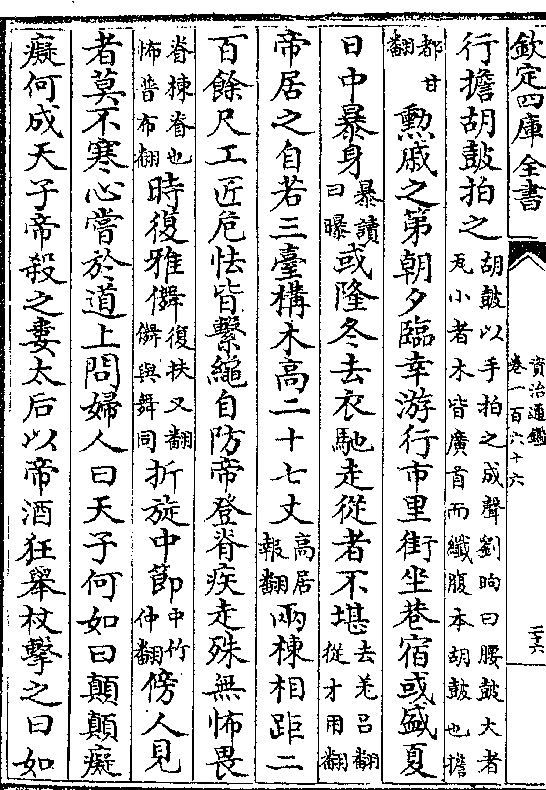 欽定四庫全書
資治通鑑
卷一百六十六
行擔胡鼓拍之胡鼓以手拍之成聲劉昫曰腰鼓大者瓦小者木皆廣首而纖腹本胡鼓也擔
都甘翻勲戚之第朝夕臨幸游行市里街坐巷宿或盛夏
日中暴身暴讀曰曝或隆冬去衣馳走從者不堪去羌呂翻從才用翻
帝居之自若三臺構木高二十七丈高居報翻兩棟相距二
百餘尺工匠危怯皆繫繩自防帝登脊疾走殊無怖畏
脊棟脊也怖普布翻時復雅儛復扶又翻儛與舞同折旋中節中竹仲翻傍人見
者莫不寒心嘗於道上問婦人曰天子何如曰顛顛癡
癡何成天子帝殺之婁太后以帝酒狂舉杖擊之曰如